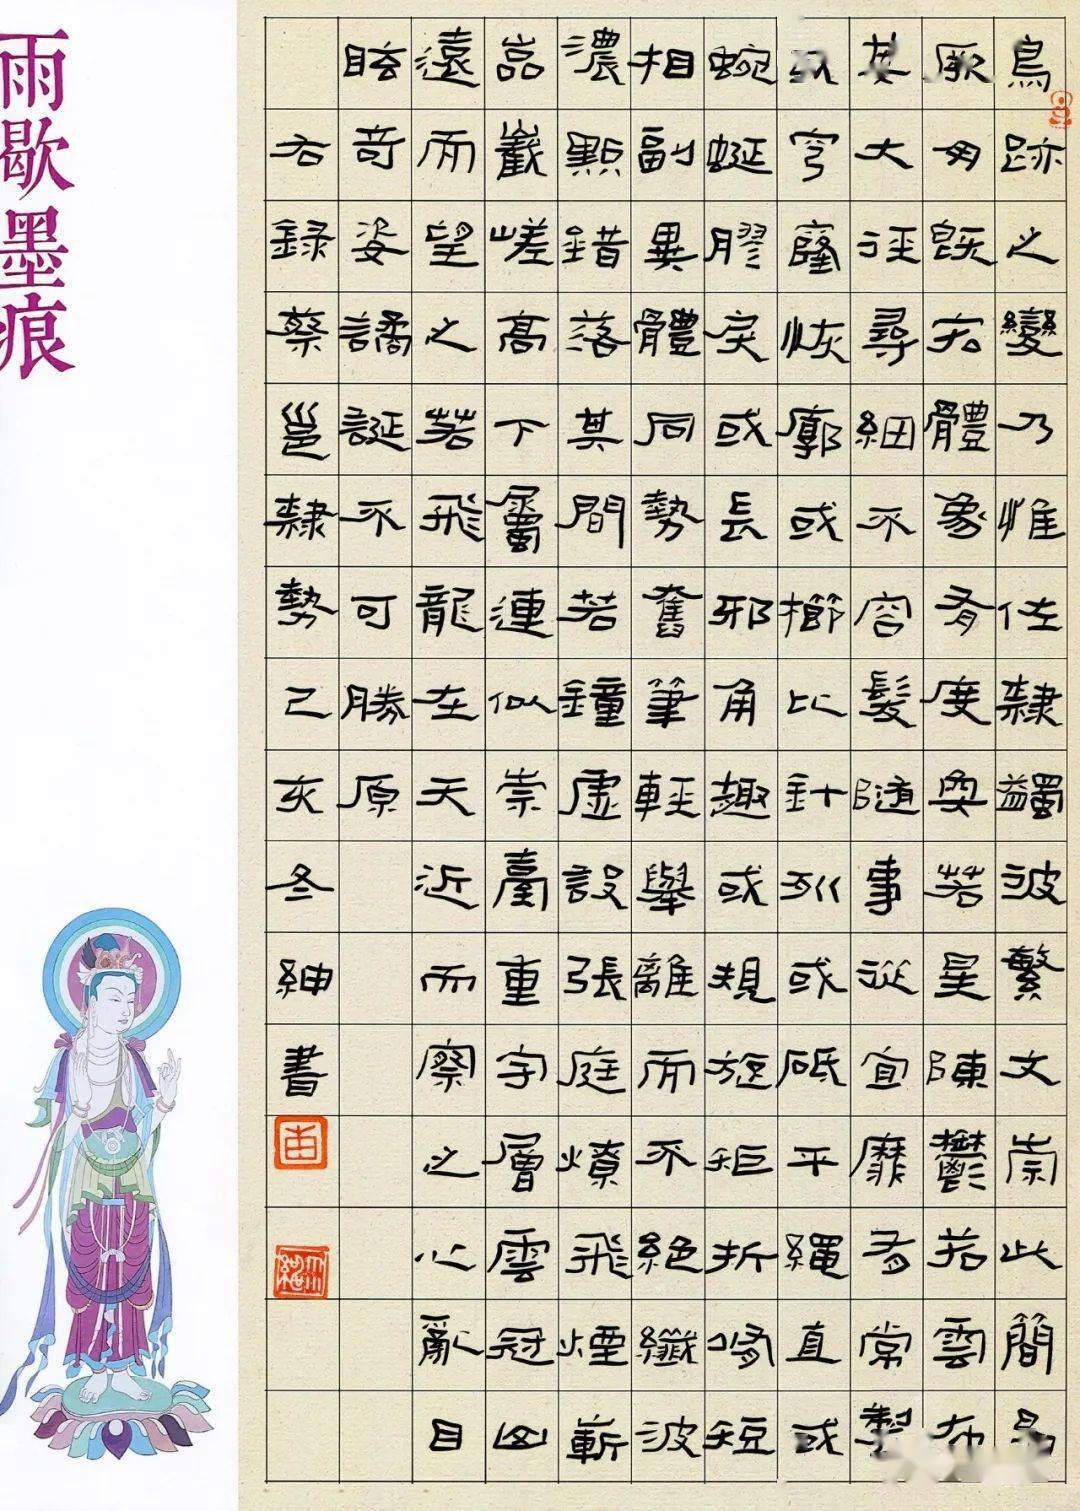 鳥跡之變乃惟佐隸蠲彼繁文崇此簡易
厥用既弘體象有度奐若星陳鬱若雲布
其大徑尋細不容髮隨事從宜靡有常制
或穹窿恢廓或櫛比針列或砥平繩直或
蜿蜒膠戾或長邪角趣或規旋矩折脩短
相副異體同勢奮筆輕舉離而不絕纖波
濃點錯落其間若鐘虡設張庭燎飛煙嶄
嵓嶻嵯高下屬連似崇臺重宇層雲冠山
遠而望之若飛龍在天近而察之心亂目
眩奇姿譎誕不可勝原
右録蔡邕隸勢己亥冬紳書
雨歇墨痕